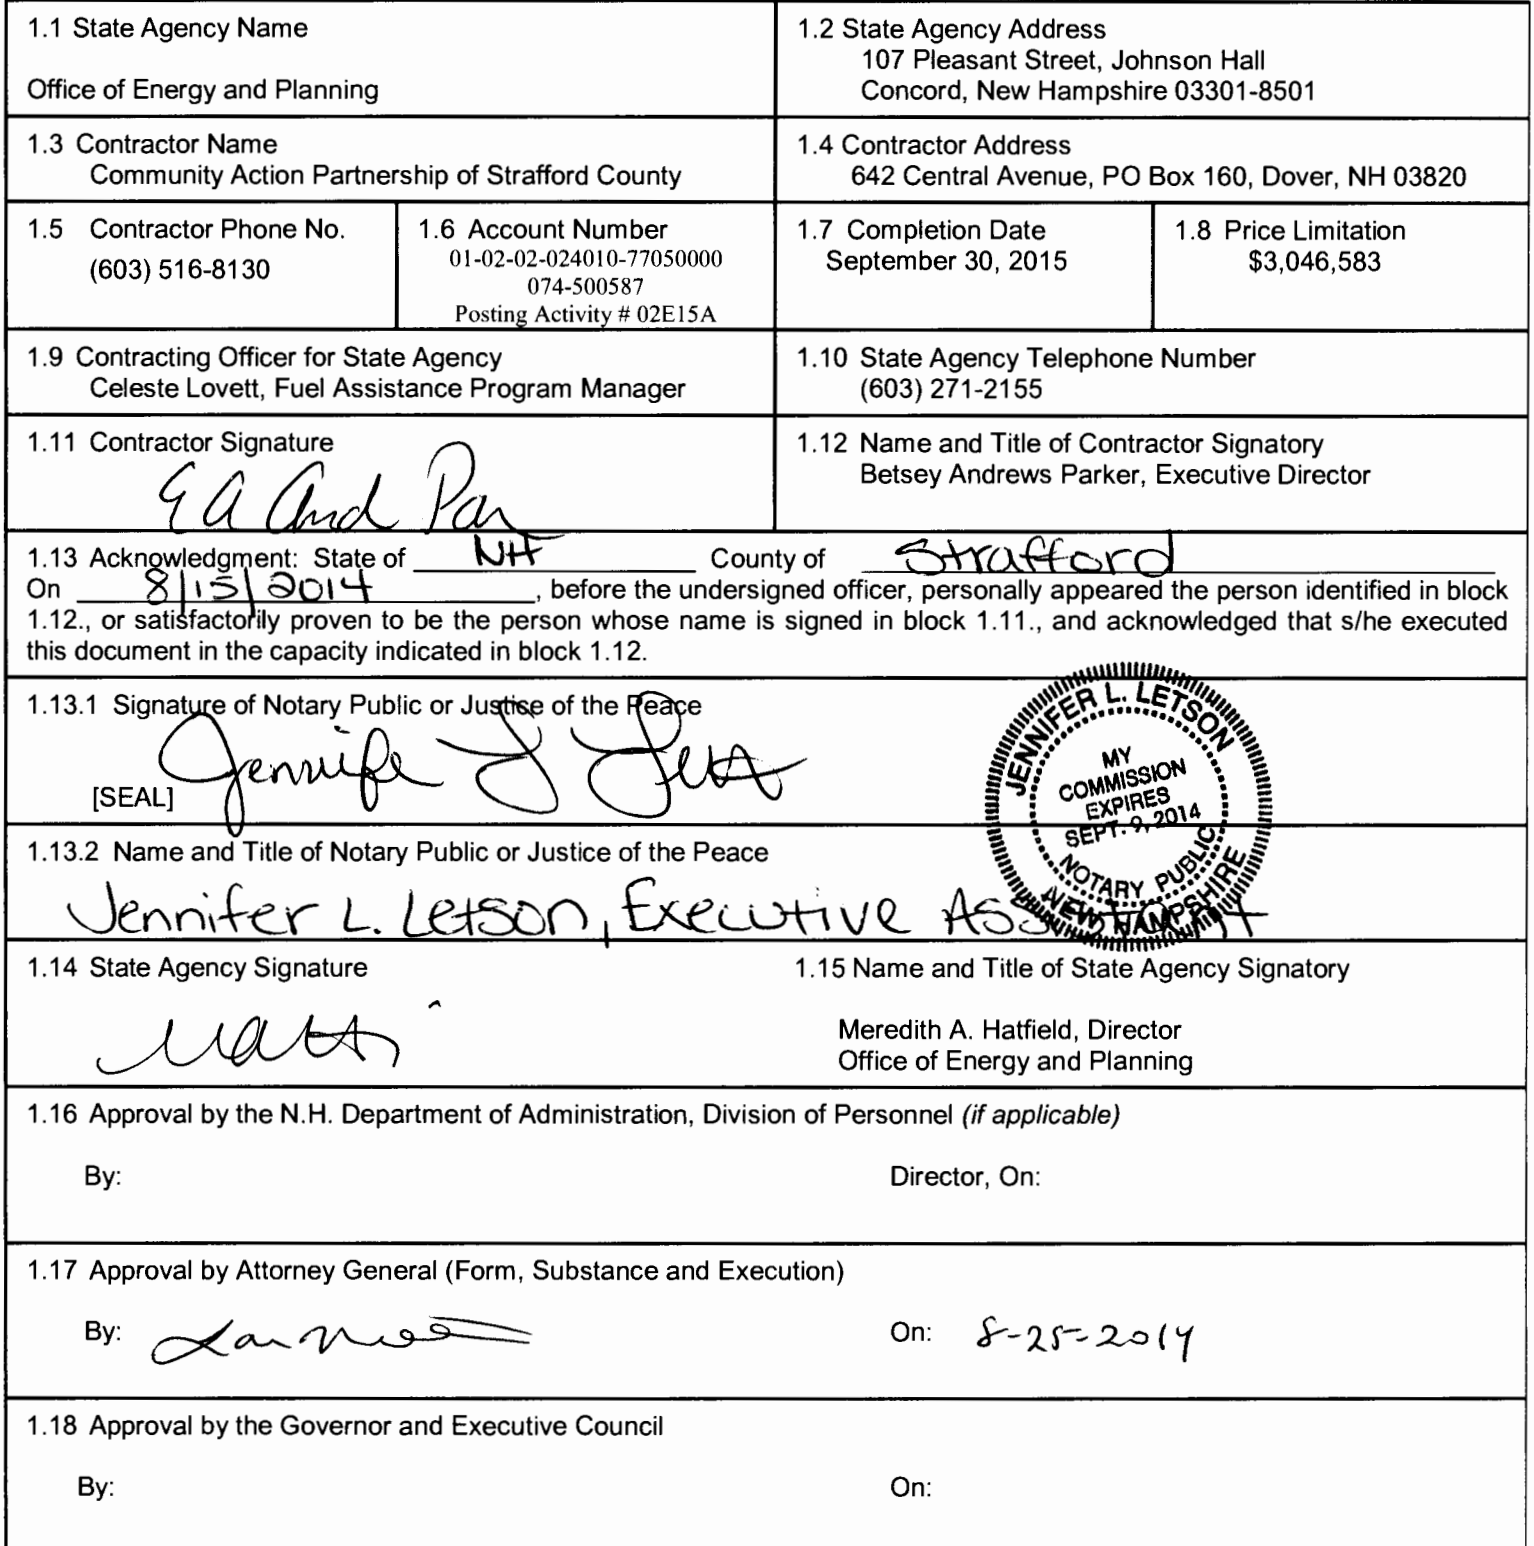 1.1 State Agency Name
Office of Energy and Planning
1.2 State Agency Address
107 Pleasant Street, Johnson Hall
Concord, New Hampshire 03301-8501
1.3 Contractor Name
Community Action Partnership of Strafford County
1.4 Contractor Address
642 Central Avenue, PO Box 160, Dover, NH 03820
1.5 Contractor Phone No.
(603) 516-8130
1.6 Account Number
01-02-02-024010-77050000
074-500587
Posting Activity # 02E15A
1.7 Completion Date
September 30, 2015
1.8 Price Limitation
$3,046,583
1.9 Contracting Officer for State Agency
Celeste Lovett, Fuel Assistance Program Manager
1.10 State Agency Telephone Number
(603) 271-2155
1.11 Contractor Signature
1.12 Name and Title of Contractor Signatory
Betsey Andrews Parker, Executive Director
1.13 Acknowledgment: State of NH County of Strafford
On 8/15/2014, before the undersigned officer, personally appeared the person identified in block
1.12., or satisfactorily proven to be the person whose name is signed in block 1.11., and acknowledged that s/he executed
this document in the capacity indicated in block 1.12.
1.13.1 Signature of Notary Public or Justice of the Peace
[SEAL]
JENNIFER L. LETSON
MY
COMMISSION
EXPIRES
SEPT. 9, 2014
NOTARY PUBLIC
NEW HAMPSHIRE
1.13.2 Name and Title of Notary Public or Justice of the Peace
Jennifer L. Letson, Executive Assistant
1.14 State Agency Signature
1.15 Name and Title of State Agency Signatory
Meredith A. Hatfield, Director
Office of Energy and Planning
1.16 Approval by the N.H. Department of Administration, Division of Personnel (if applicable)
By: Director, On:
1.17 Approval by Attorney General (Form, Substance and Execution)
By: On: 8-25-2014
1.18 Approval by the Governor and Executive Council
By: On: